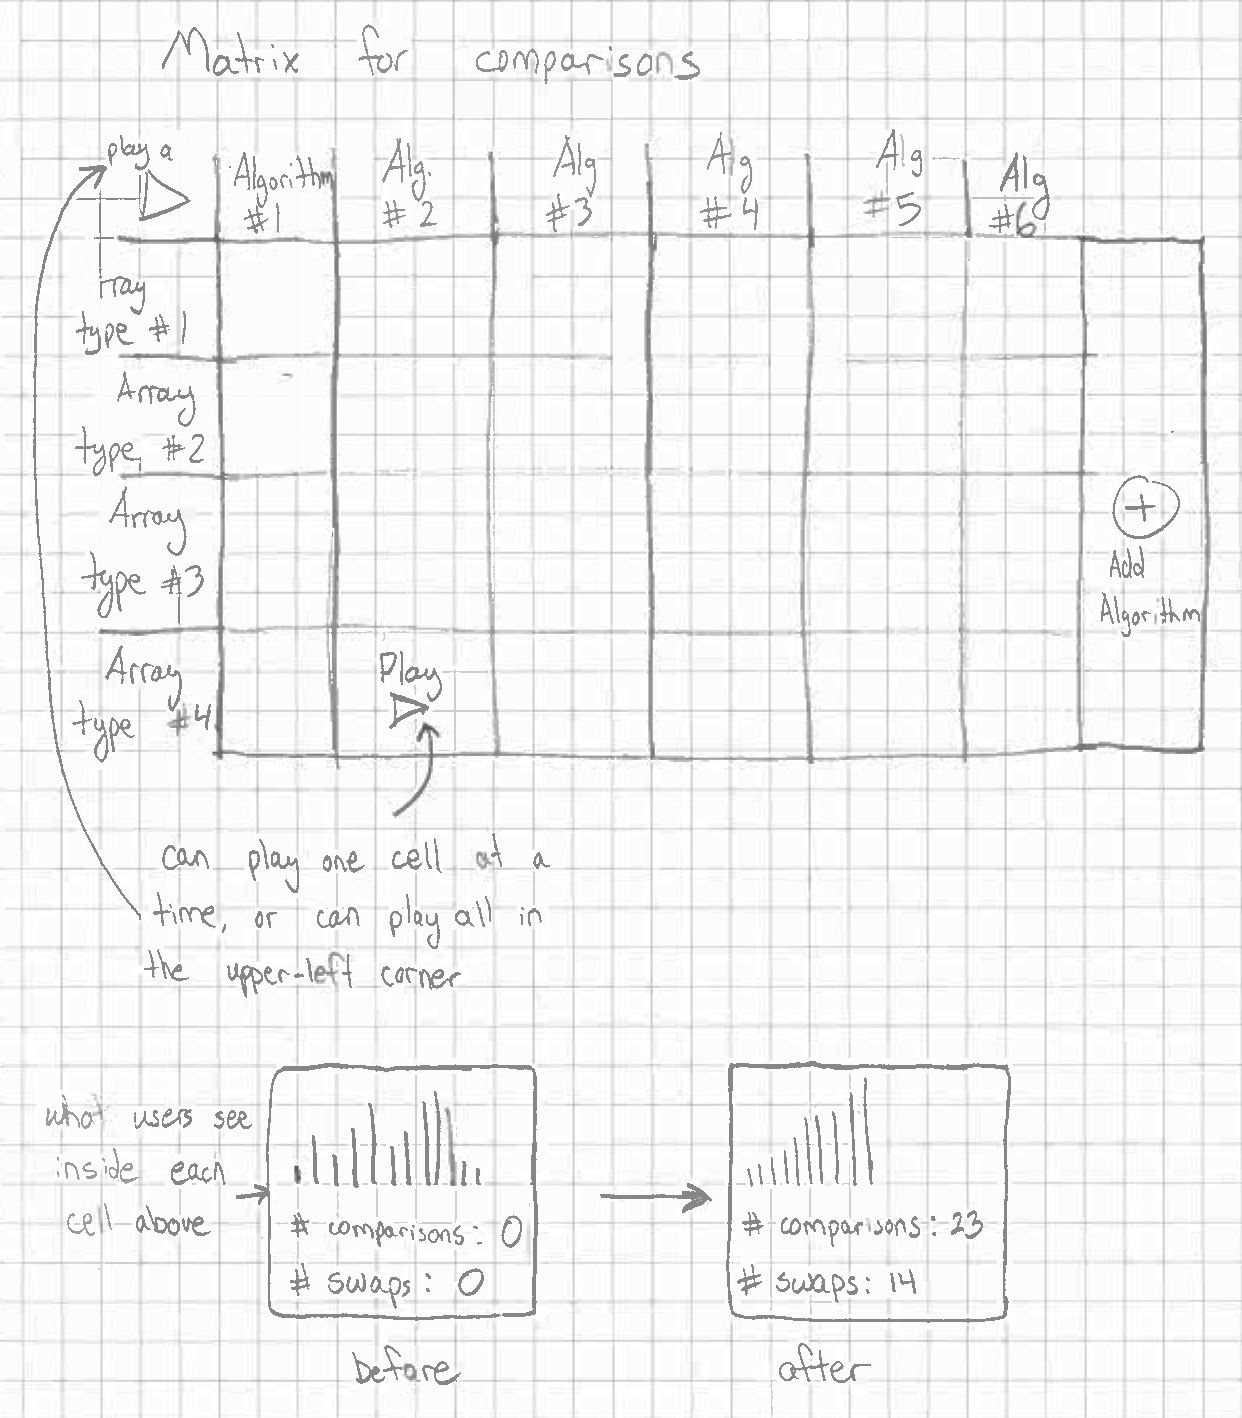 Matrix for comparisons
play a
Algorithm
#1
Alg.
#2
Alg
#3
Alg
#4
Alg
#5
Alg
#6
rray
type #1
Array
type #2
Array
type #3
Array
type #4
Play
+
Add
Algorithm
can play one cell at a
time, or can play all in
the upper-left corner
what users see
inside each
cell above
# comparisons: 0
# swaps: 0
before
# comparisons: 23
# swaps: 14
after